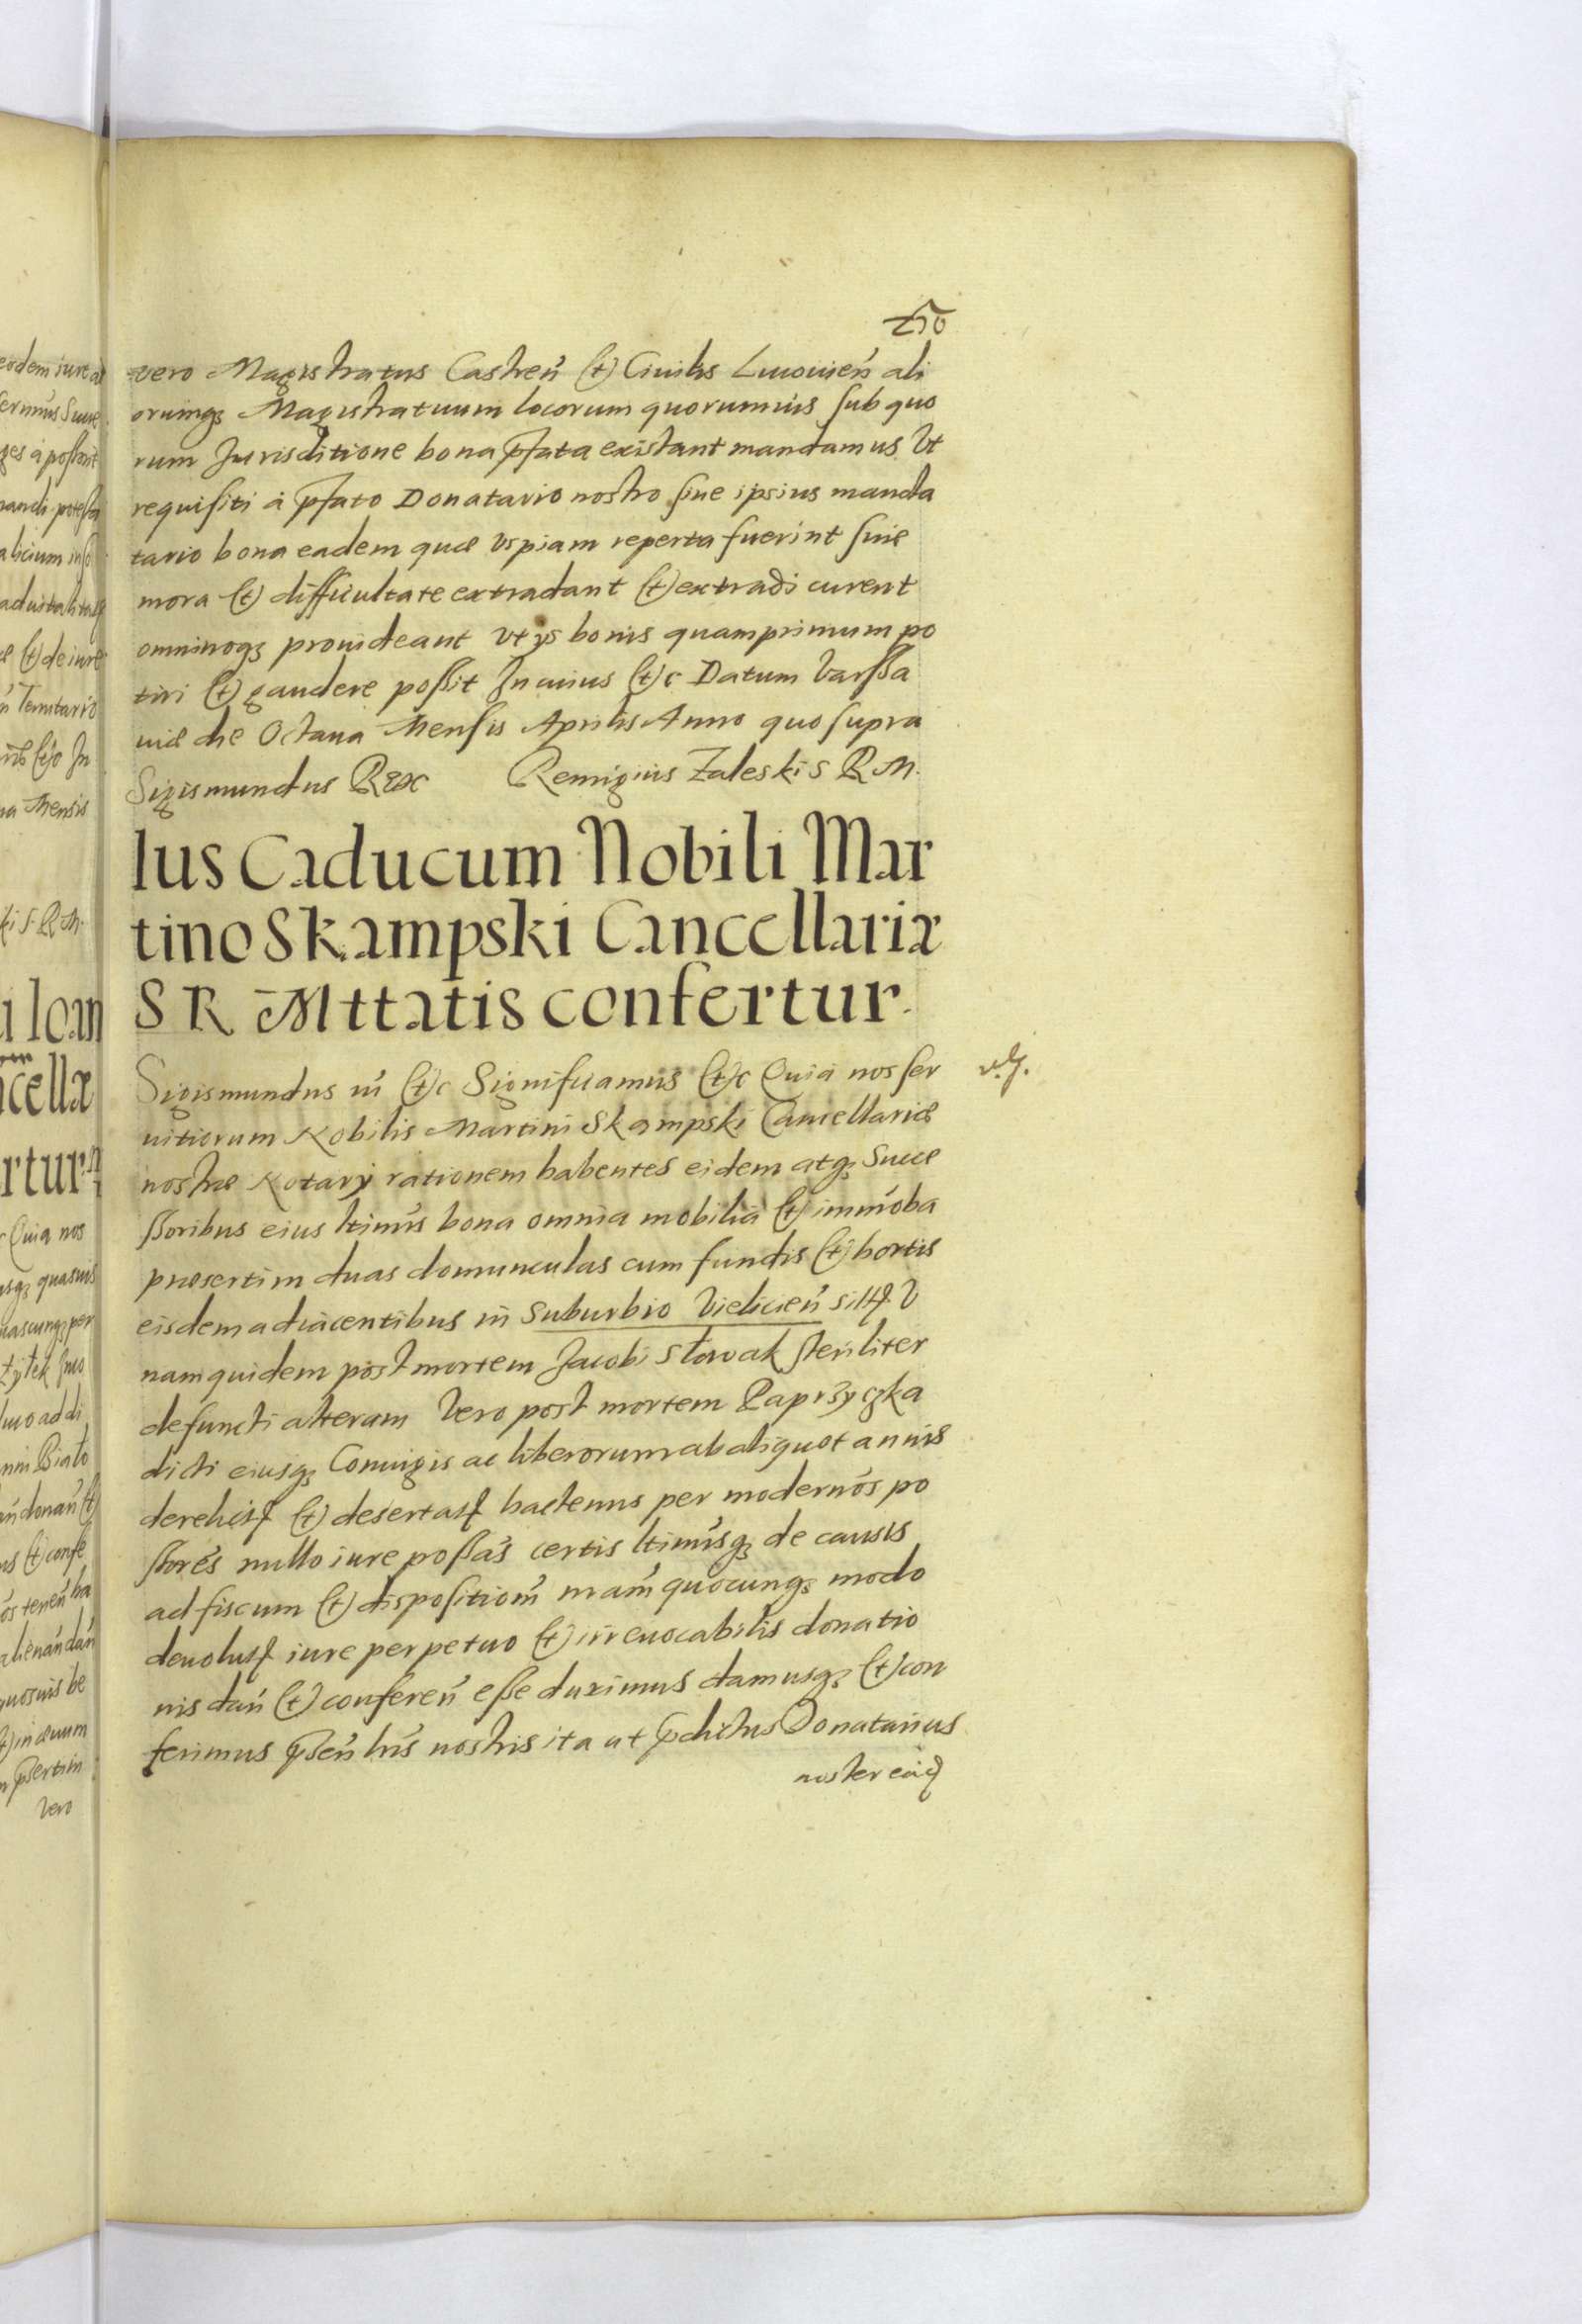 vero Magistratus Castreń (et) Ciuilis Lwowień ali
orumq3 Magistratuum locorum quorumuis sub quo
rum Jurisditione bona p̄fata existant mandamus Vt
requisiti à p̄fato Donatario nostro siue ipsius manda
tario bona eadem quæ vspiam reperta fuerint sine
mora (et) difficultate extradant (et) extradi curent
omninoq3 prouideant vt ijs bonis quamprimum po
tiri (et) gaudere possit Jn cuius (et)c Datum Varssa
uiæ die Octaua Mensis Aprilis Anno quo supra
Sigismundus Rex Remigius Zaleski S R M.
Ius Caducum Nobili Mar
tino Skampski Cancellariæ
S R Mttatis confertur.
Sigismundus iii (et)c Significamus (et)c Quia nos ser
uitiorum Nobilis Martini Skampski Cancellariæ
nostræ Notarij rationem habentes eidem atq3 Succe
ssoribus eius ltimis bona omnia mobilia (et) immoba
præsertim duas domunculas cum fundis (et) hortis
eisdem adiacentibus in Suburbio Vielicień sitas V
nam quidem post mortem Jacobi Słowak steriliter
defuncti alteram Vero post mortem Paprzyczka
dicti eiusq3 Coniugis ac liberorum ab aliquot annis
derelictas (et) desertas hactenus per modernos po
ssores nullo iure possas certis ltimisq3 de causis
ad fiscum (et) dispositionḿ nram quocunq3 modo
deuolutas iure perpetuo (et) irreuocabilis donatio
nis dań (et) confereń esse duximus damusq3 (et) con
ferimus p̄seń lris nostris ita ut p̄dictus Donatarius
noster